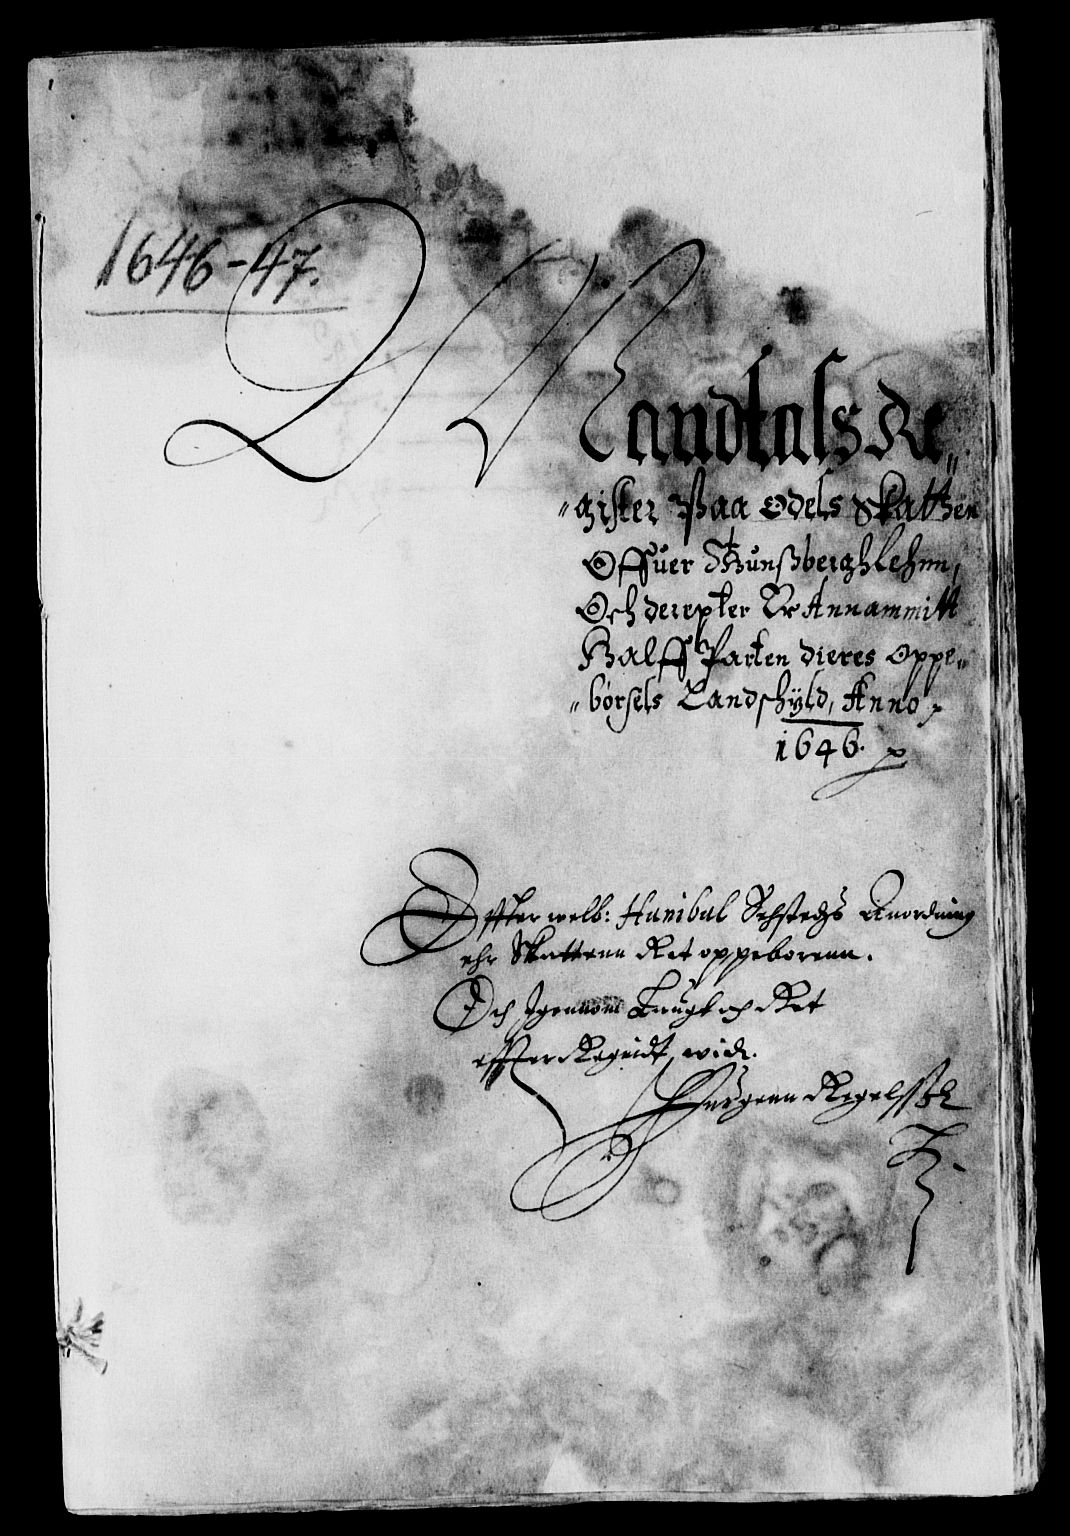 1646-47.
Mandtals Re„
„gister Paa Odels Skatten
Offuer Thunßberghlehnn,
Och derepter Er Annammitt
Halff Parten dieres Oppe„
„børsels Landschÿld, Anno
1646.
Effter welb: Hanibal Sehsteds Anordning
ehr Skattenn Ret oppeborenn.
Och Igennom Laugt och Ret
effter Regnidt, widr.